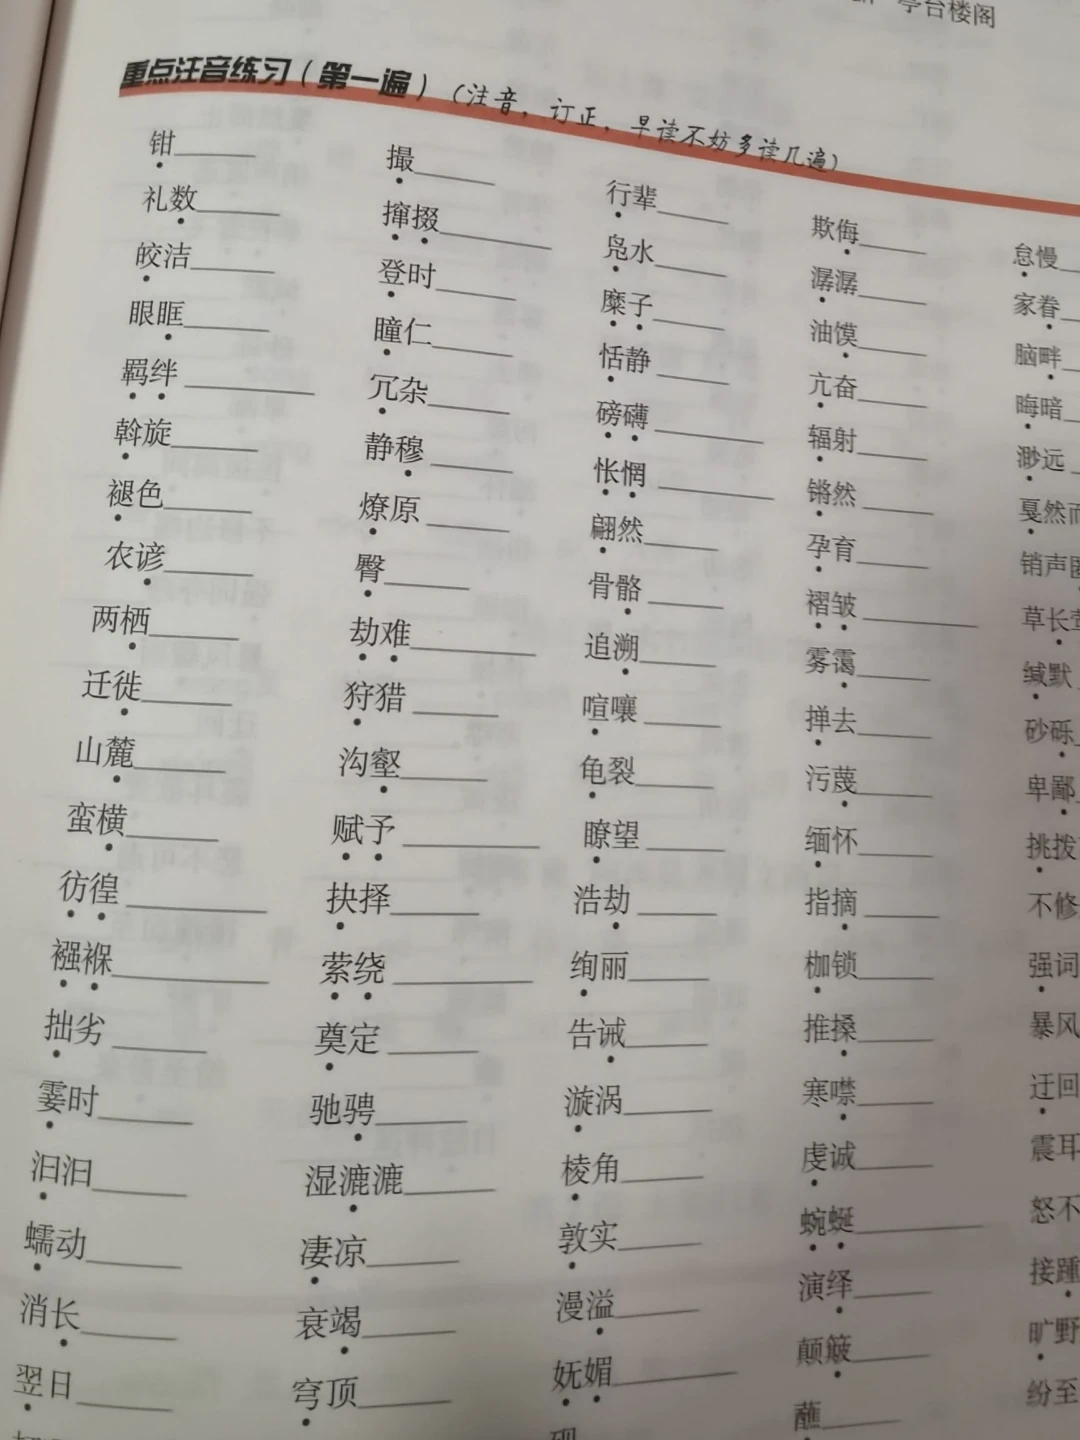 亭台楼阁
重点注音练习(第一遍)(注音,订正,早读不妨多读几遍)
钳
礼数
皎洁
眼眶
羁绊
斡旋
褪色
农谚
两栖
迁徙
山麓
蛮横
彷徨
襁褓
拙劣
霎时
汩汩
蠕动
消长
翌日
撮
撺掇
登时
瞳仁
冗杂
静穆
燎原
臀
劫难
狩猎
沟壑
赋予
抉择
萦绕
奠定
驰骋
湿漉漉
凄凉
衰竭
穹顶
行辈
凫水
糜子
恬静
磅礴
怅惘
翩然
骨骼
追溯
喧嚷
龟裂
瞭望
浩劫
绚丽
告诫
漩涡
棱角
敦实
漫溢
妩媚
砚
欺侮
潺潺
油馍
亢奋
辐射
锵然
孕育
褶皱
雾霭
掸去
污蔑
缅怀
指摘
枷锁
推搡
寒噤
虔诚
蜿蜒
演绎
颠簸
蘸
怠慢
家眷
脑畔
晦暗
渺远
戛然而
销声匿
草长莺
缄默
砂砾
卑鄙
挑拨
不修
强词
暴风
迂回
震耳
怒不
接踵
旷野
纷至